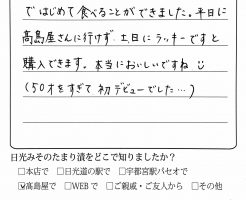 ではじめて食べることができました。平日に
高島屋さんに行けず、土日にラッキーですと
購入できます。本当においしいですね
(50才をすぎて初デビューでした…)
日光みそのたまり漬をどこで知りましたか?
□本店で □日光道の駅で □宇都宮駅パセオで
☑高島屋で □WEBで □ご親戚・ご友人から □その他